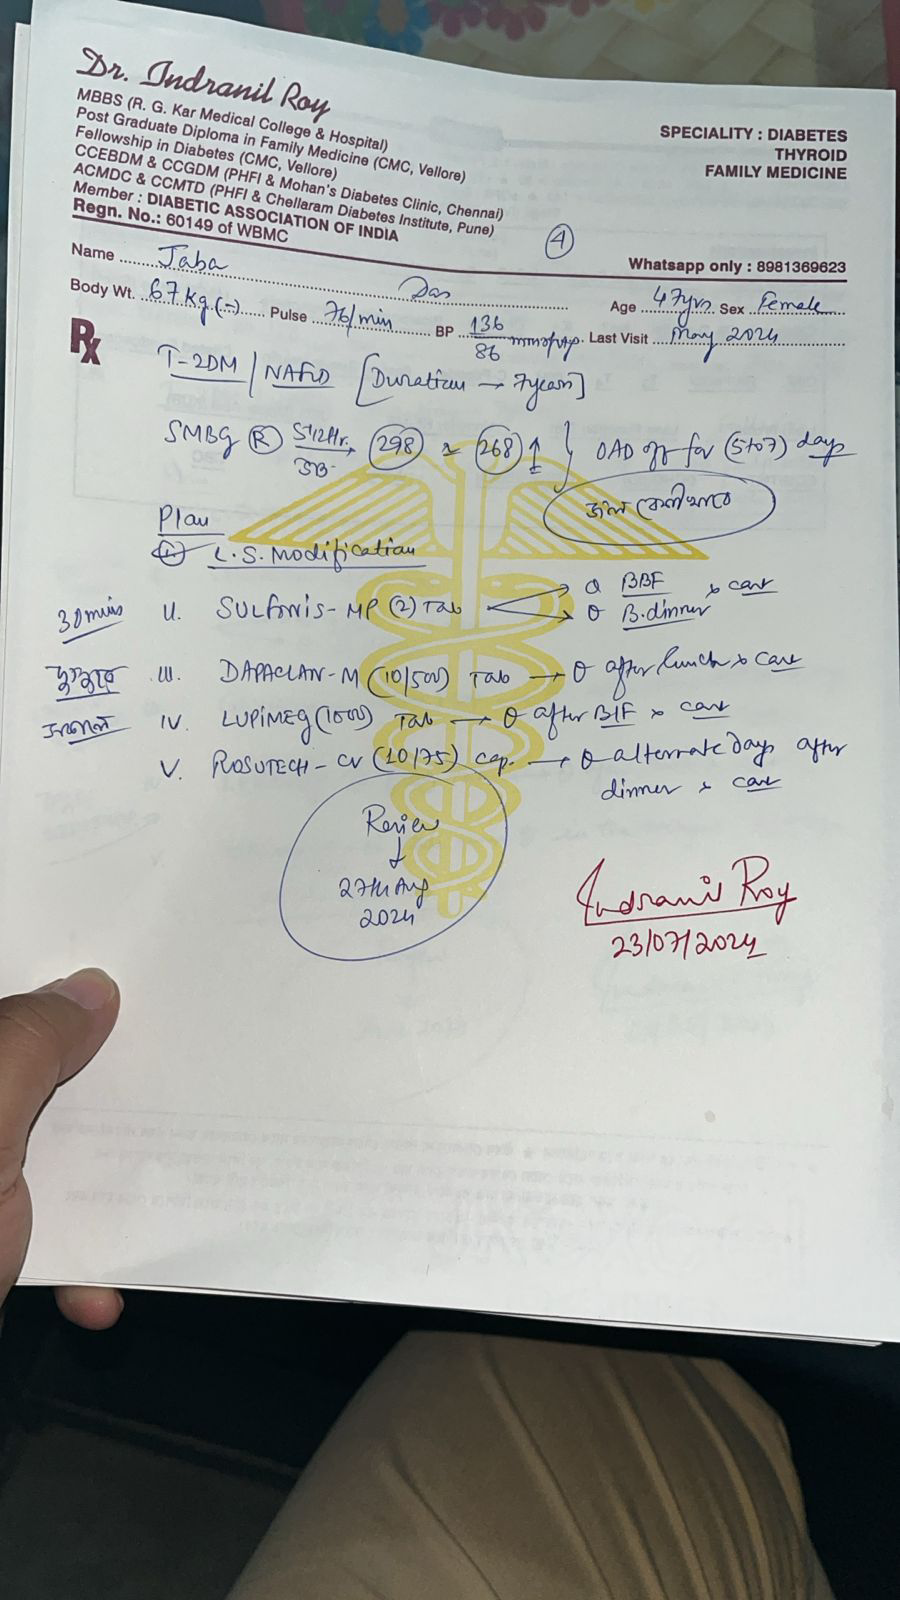 Dr. Indranil Roy
MBBS (R. G. Kar Medical College & Hospital)
Post Graduate Diploma in Family Medicine (CMC, Vellore)
Fellowship in Diabetes (CMC, Vellore)
CCEBDM & CCGDM (PHFI & Mohan's Diabetes Clinic, Chennai)
ACMDC & CCMTD (PHFI & Chellaram Diabetes Institute, Pune)
Member : DIABETIC ASSOCIATION OF INDIA
Regn. No.: 60149 of WBMC
SPECIALITY : DIABETES
THYROID
FAMILY MEDICINE
4
Whatsapp only : 8981369623
Name Jaba Das Age 47yrs Sex Female
Body Wt. 67kg (-) Pulse 76/min BP 136/86 mmofHg. Last Visit May 2024
Rx
T-2DM / NAFLD [Duration → 7years]
SMBG (R) 298 ≈ 268 ↑ } OAD off for (5to7) days
জল বেশী খাবে
Plan
I. L.S. Modification
30mins II. SULFONIS-MP (2) Tab BBF x cont
B.dinner
দুপুরে III. DAPACLAN-M (10/500) Tab → after lunch x cont
সকালে IV. LUPIMEG (1000) Tab → after B/F x cont
V. ROSUTECH-CV (10/75) cap. → alternate days after
dinner x cont
Review
↓
27th Aug
2024
Indranil Roy
23/07/2024